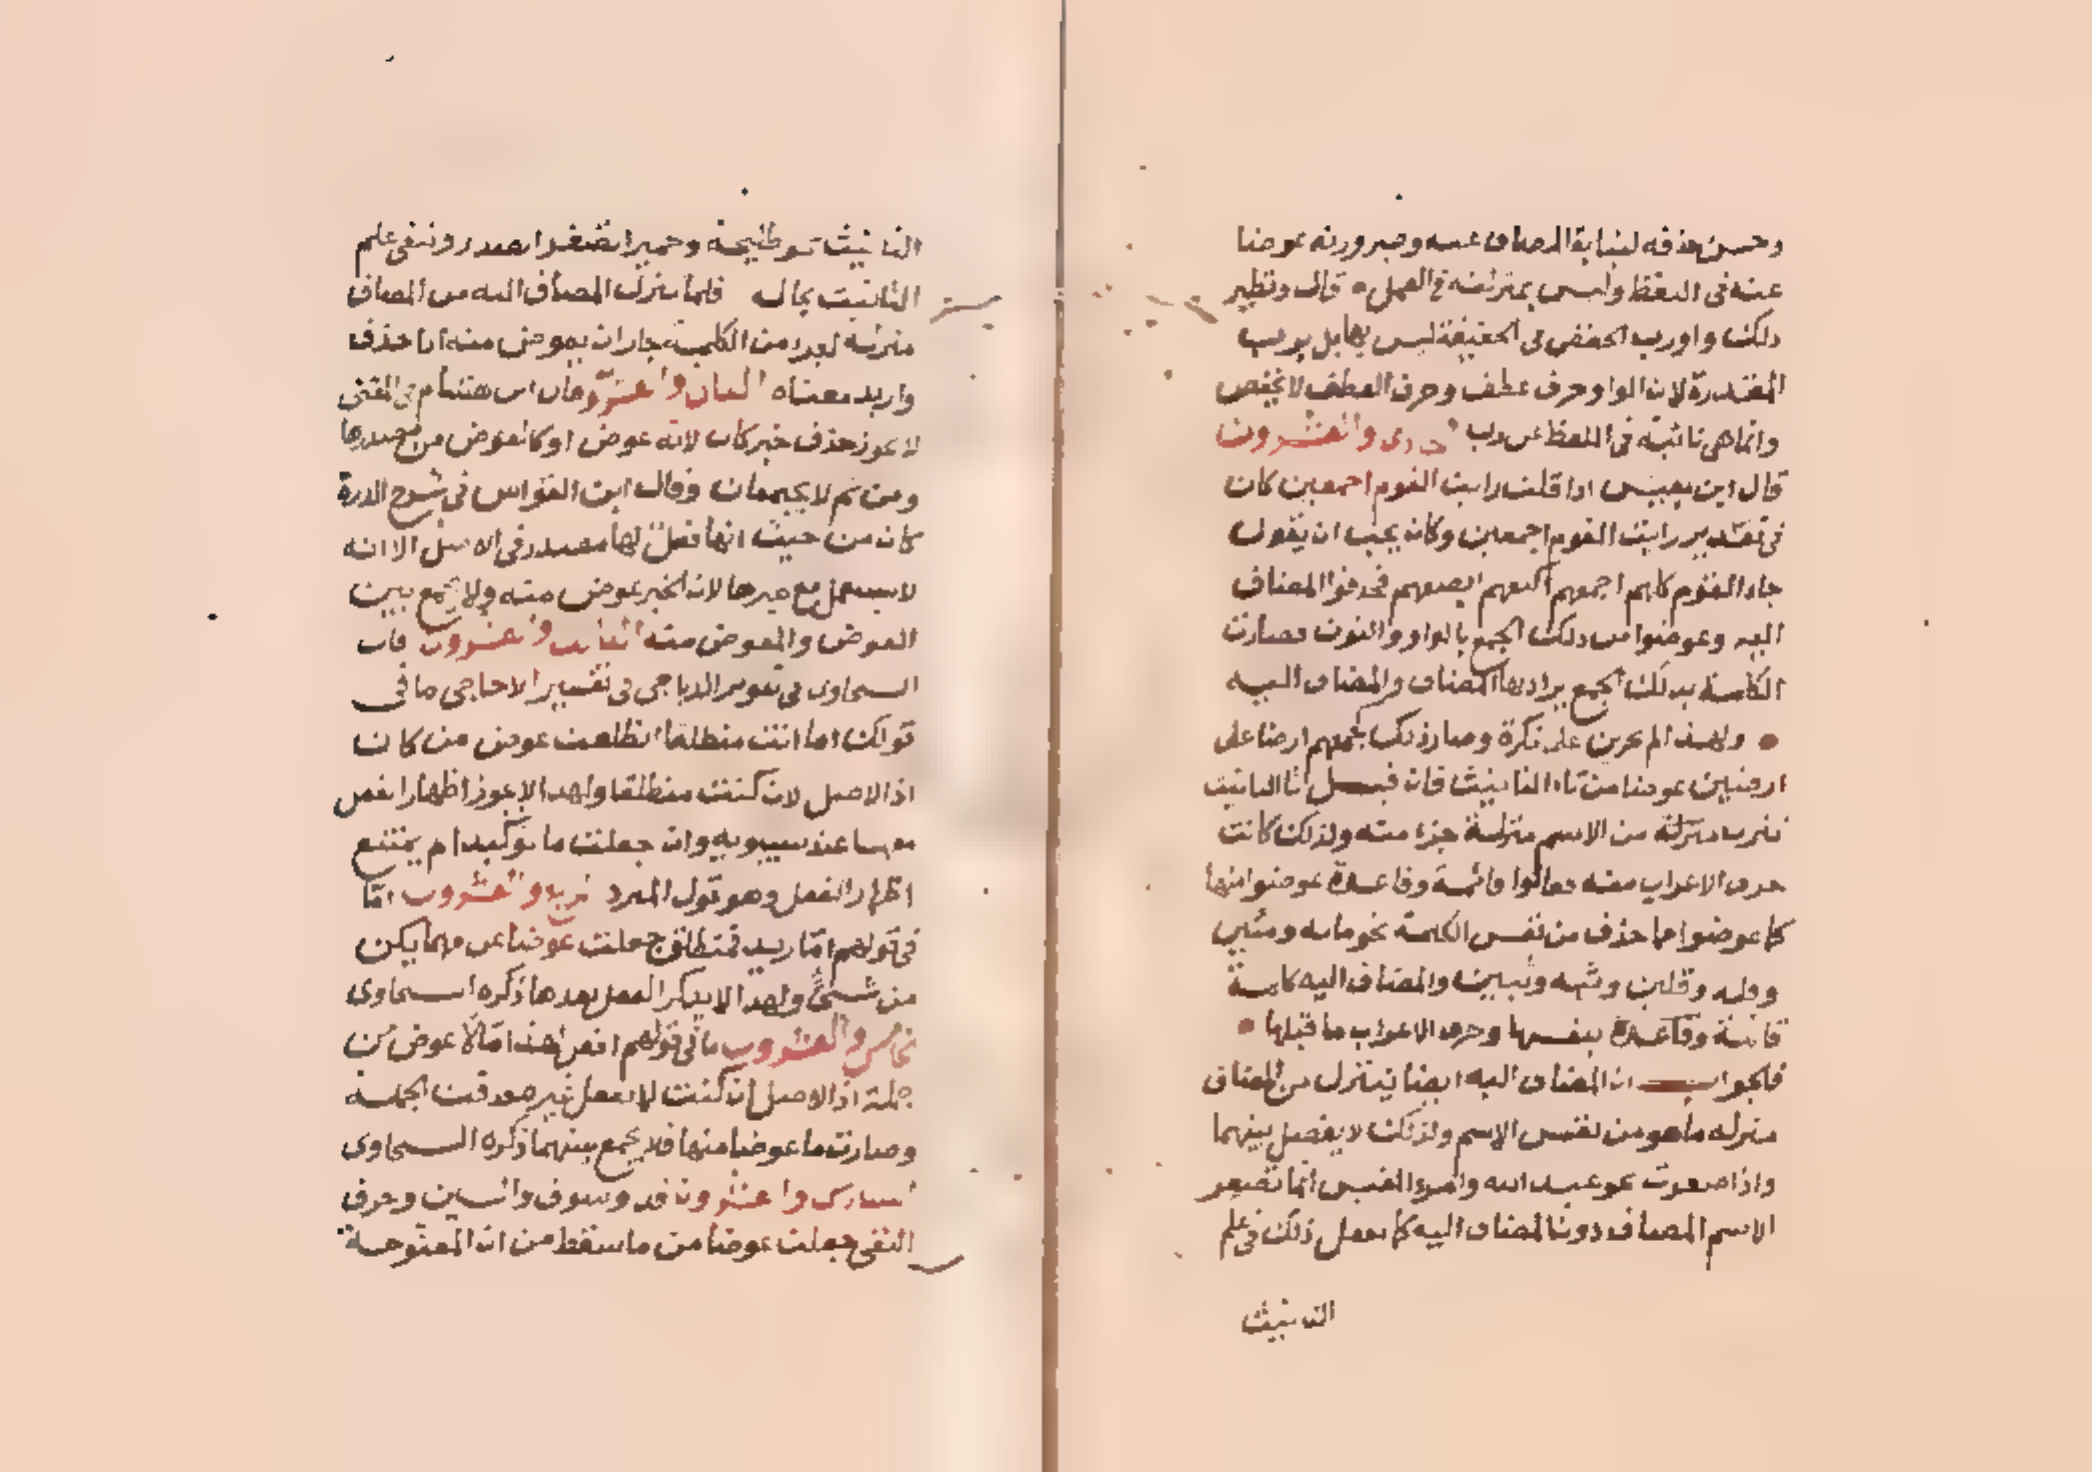 وحسن حذفه لنيابة المضاف عنه وصيرورته عوضا
عنه فى اللفظ وليس بمنزلته فى العمل قال ونظير
ذلك واو رب الخفض فى الحقيقة ليس بها بل برب
المقدرة لان الواو حرف عطف وحرف العطف لا يخفض
وانما هى نائبة فى اللفظ عن رب الحادى والعشرون
قال ابن يعيش اذا قلت رايت القوم اجمعين كان
فى تقدير رايت القوم اجمعين وكان يجب ان يقول
جاء القوم كلهم اجمعهم اكتعهم ابصعهم فحذفوا المضاف
اليه وعوضوا من ذلك الجمع بالواو والنون فصارت
الكلمة بذلك الجمع يراد بها المضاف والمضاف اليه
ولهذا لم يجرين على نكرة وصار ذلك كجمعهم ارضا على
ارضين عوضا من تاء التانيث فان قيل تاء التانيث
تنزل منزلة من الاسم منزلة جزء منه ولذلك كانت
حرف الاعراب منه فقالوا قائمة وقاعدة عوضوا منها
كما عوضوا مما حذف من نفس الكلمة نحو مائة ومئين
وقلة وقلين وثبة وثبين والمضاف اليه كلمة
قائمة وقاعدة بنفسها وحرف الاعراب ما قبلها
فالجواب ان المضاف اليه ايضا يتنزل من المضاف
منزلة ما هو من نفس الاسم ولذلك لا يفصل بينهما
واذا صغرت نحو عبد الله وامرء القيس انما تصغر
الاسم المضاف دون المضاف اليه كما تفعل ذلك فى علم
التانيث
التانيث نحو طليحة وحميراء تصغر الصدر وتبقى علم
التانيث بحاله فلما تنزل المضاف اليه من المضاف
منزلة الجزء من الكلمة جاز ان يعوض منه اذا حذف
واريد معناه الثانى والعشرون قال ابن هشام فى المغنى
لا يجوز حذف خبر كان لانه عوض او كالعوض من مصدرها
ومن ثم لا يجتمعان وقال ابن القواس فى شرح الدرة
كان من حيث انها فعل لها مصدر فى الاصل الا انه
لا يستعمل مع خبرها لان الخبر عوض منه ولا يجمع بين
العوض والمعوض منه الثالث والعشرون قال
السخاوى فى تنوير الدياجى فى تفسير الاحاجى ما فى
قولك اما انت منطلقا انطلقت عوض من كان
اذ الاصل لان كنت منطلقا ولهذا لا يجوز اظهار الفعل
معها عند سيبويه وان جعلت ما توكيدا لم يمتنع
اظهار الفعل وهو قول المبرد الرابع والعشرون اما
فى قولهم اما زيد فمنطلق جعلت عوضا عن مهما يكن
من شىء ولهذا لا يذكر الفعل بعدها ذكره السخاوى
الخامس والعشرون ما فى قولهم افعل هذا اما لا عوض من
جملة اذ الاصل ان كنت لا تفعل غيره فحذفت الجملة
وصارت ما عوضا منها فلا يجمع بينهما ذكره السخاوى
السادس والعشرون قد وسوف والسين وحرف
النفى جعلت عوضا من ما سقط من ان المفتوحة